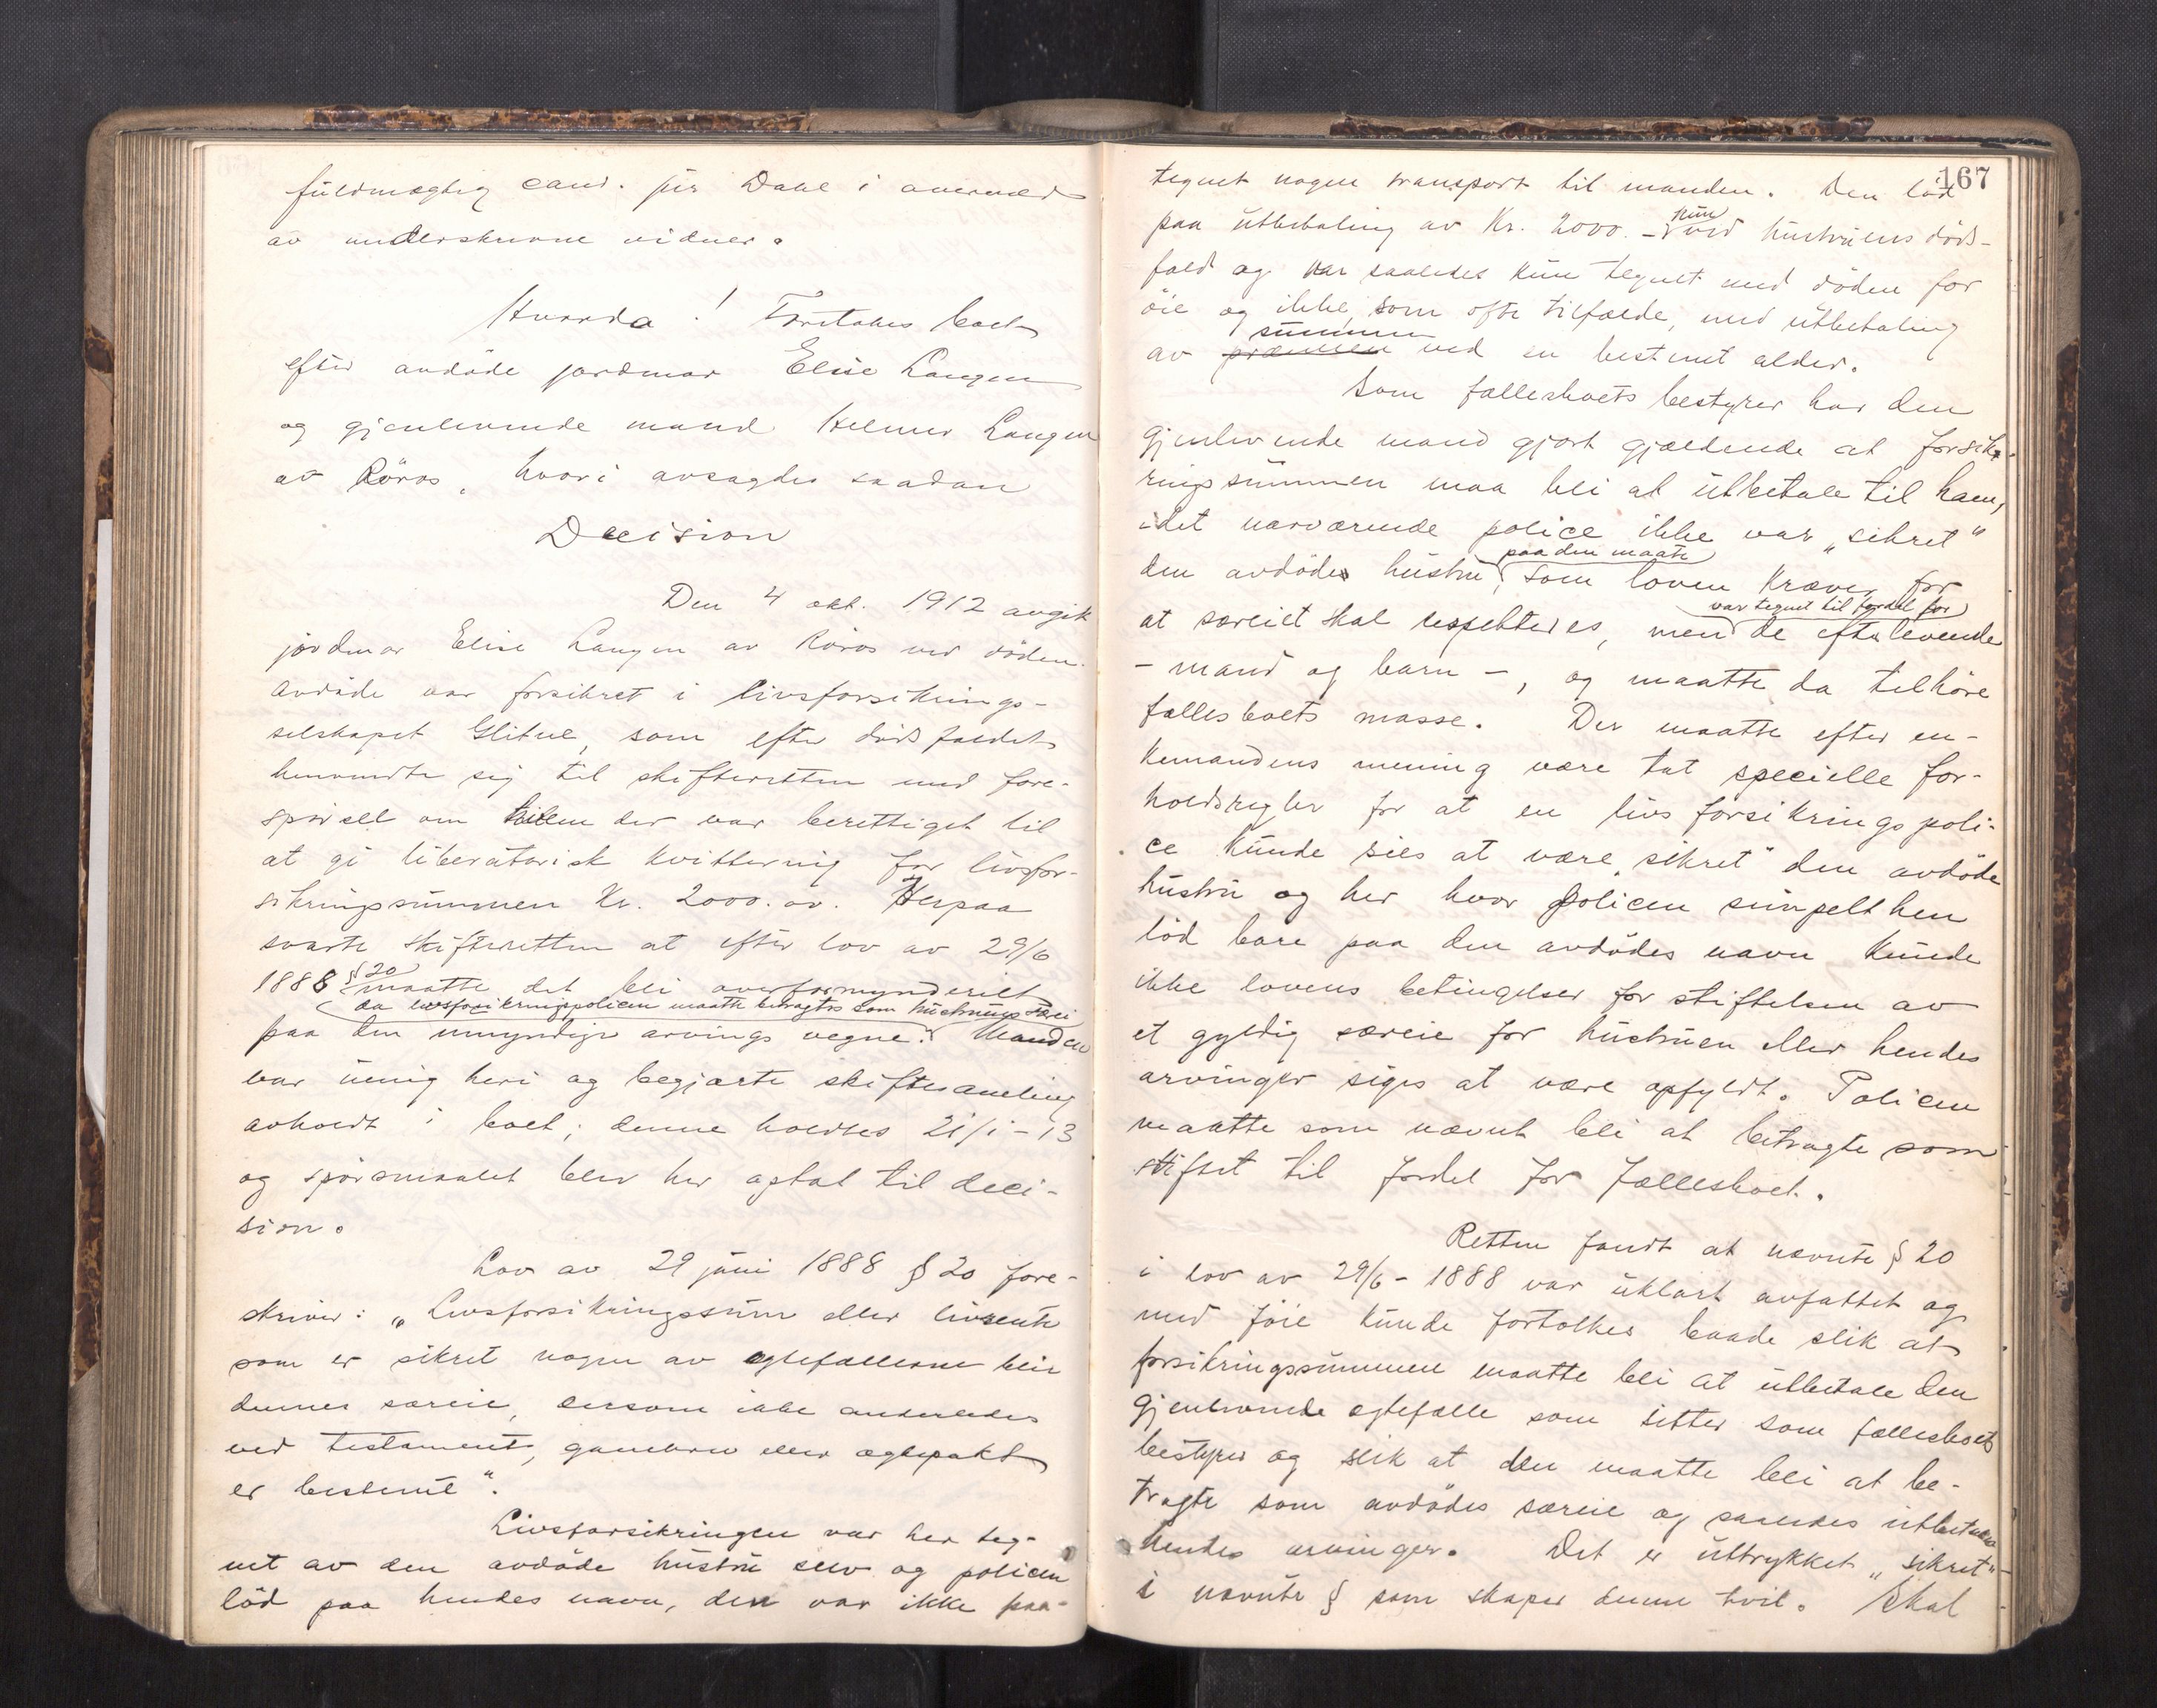 fuldmægtig cand. jur Dahl i overvær
av underskrevne vidner.
Hvorda! Foretokes boet
efter avdöde jordmor Elise Langen
og gjenlevende mand Helmer Langen
av Röros, hvori avsagdes saadan
Decision
Den 4 okt. 1912 avgik
jordmor Elise Langen av Röros ved döden.
Avdöde var forsikret i livsforsikrings-
selskapet Glitne, som efter dödsfaldet
henvendte sig til skifteretten med fore-
spörsell om hvem der var berettiget til
at gi liberatorisk kvittering for livsfor-
sikringssummen Kr. 2000.00. Herpaa
svarte skifteretten at efter lov av 29/6
1888 § 20 maatte det bli overformynderiet
da livsforsikringspolicen maatte betragtes som hustruens særeie
paa den umyndige arvings vegne. Manden
var uenig heri og begjærte skiftesamling
avholdt i boet; denne holdtes 21/1-13
og spörsmaalet blev her optat til deci-
sion.
Lov av 29 juni 1888 § 20 fore-
skriver: „Livsforsikringssum eller livrente
som er sikret nogen av egtefællerne blir
dennes særeie, dersom ikke anderledes
ved testamente, gavebrev eller ægtepakt
er bestemt".
Livsforsikringen var her teg-
net av den avdöde hustru selv og policen
löd paa hendes navn, den var ikke paa-
167
tegnet nogen transport til manden. Den löd
paa utbetaling av Kr. 2000.- kun ved hustruens döds-
fald og var saaledes kun tegnet med döden for
öie og ikke, som ofte tilfælde, med utbetaling
summen
av præmien ved en bestemt alder.
Som fællesboets bestyrer har den
gjenlevende mand gjort gjældende at forsik-
ringssummen maa bli at utbetale til ham,
idet nærværende police ikke var „sikret"
paa den maate
den avdödes hustru, som loven kræver for
var tegnet til fordel for
at særeiet skal respekteres, men de efterlevende
- mand og barn -, og maatte da tilhöre
fællesboets masse. Der maatte efter en-
kemandens mening være tat specielle for-
holdsregler for at en livsforsikringspoli-
ce kunde sies at være „sikret" den avdöde
hustru og her hvor policen simpelthen
löd bare paa den avdödes navn kunde
ikke lovens betingelser for stiftelsen av
et gyldig særeie for hustruen eller hendes
arvinger siges at være opfyldt. Policen
maatte som nævnt bli at betragte som
stiftet til fordel for fællesboet.
Retten fandt at nævnte § 20
i lov av 29/6-1888 var uklart avfattet og
med föie kunde fortolkes baade slik at
forsikringssummen maatte bli at utbetale den
gjenlevende egtefælle som sitter som fællesboets
bestyrer og slik at den maatte bli at be-
tragte som avdödes særeie og saaledes utbetales
hendes arvinger. Det er uttrykket „sikret"
i nævnte § som skaper denne tvil. Skal